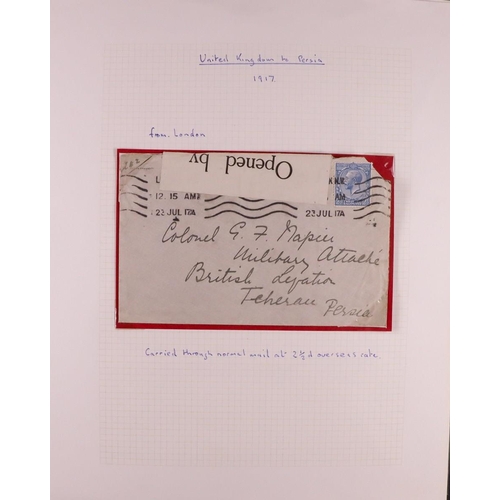 United Kingdom to Persia
1917.
from London
Opened by
12.15 AM
23 JUL 17A
23 JUL 17A
Colonel G. F. Napier
Military Attaché
British Legation
Teheran
Persia
Carried through normal mail at 2½d overseas rate.